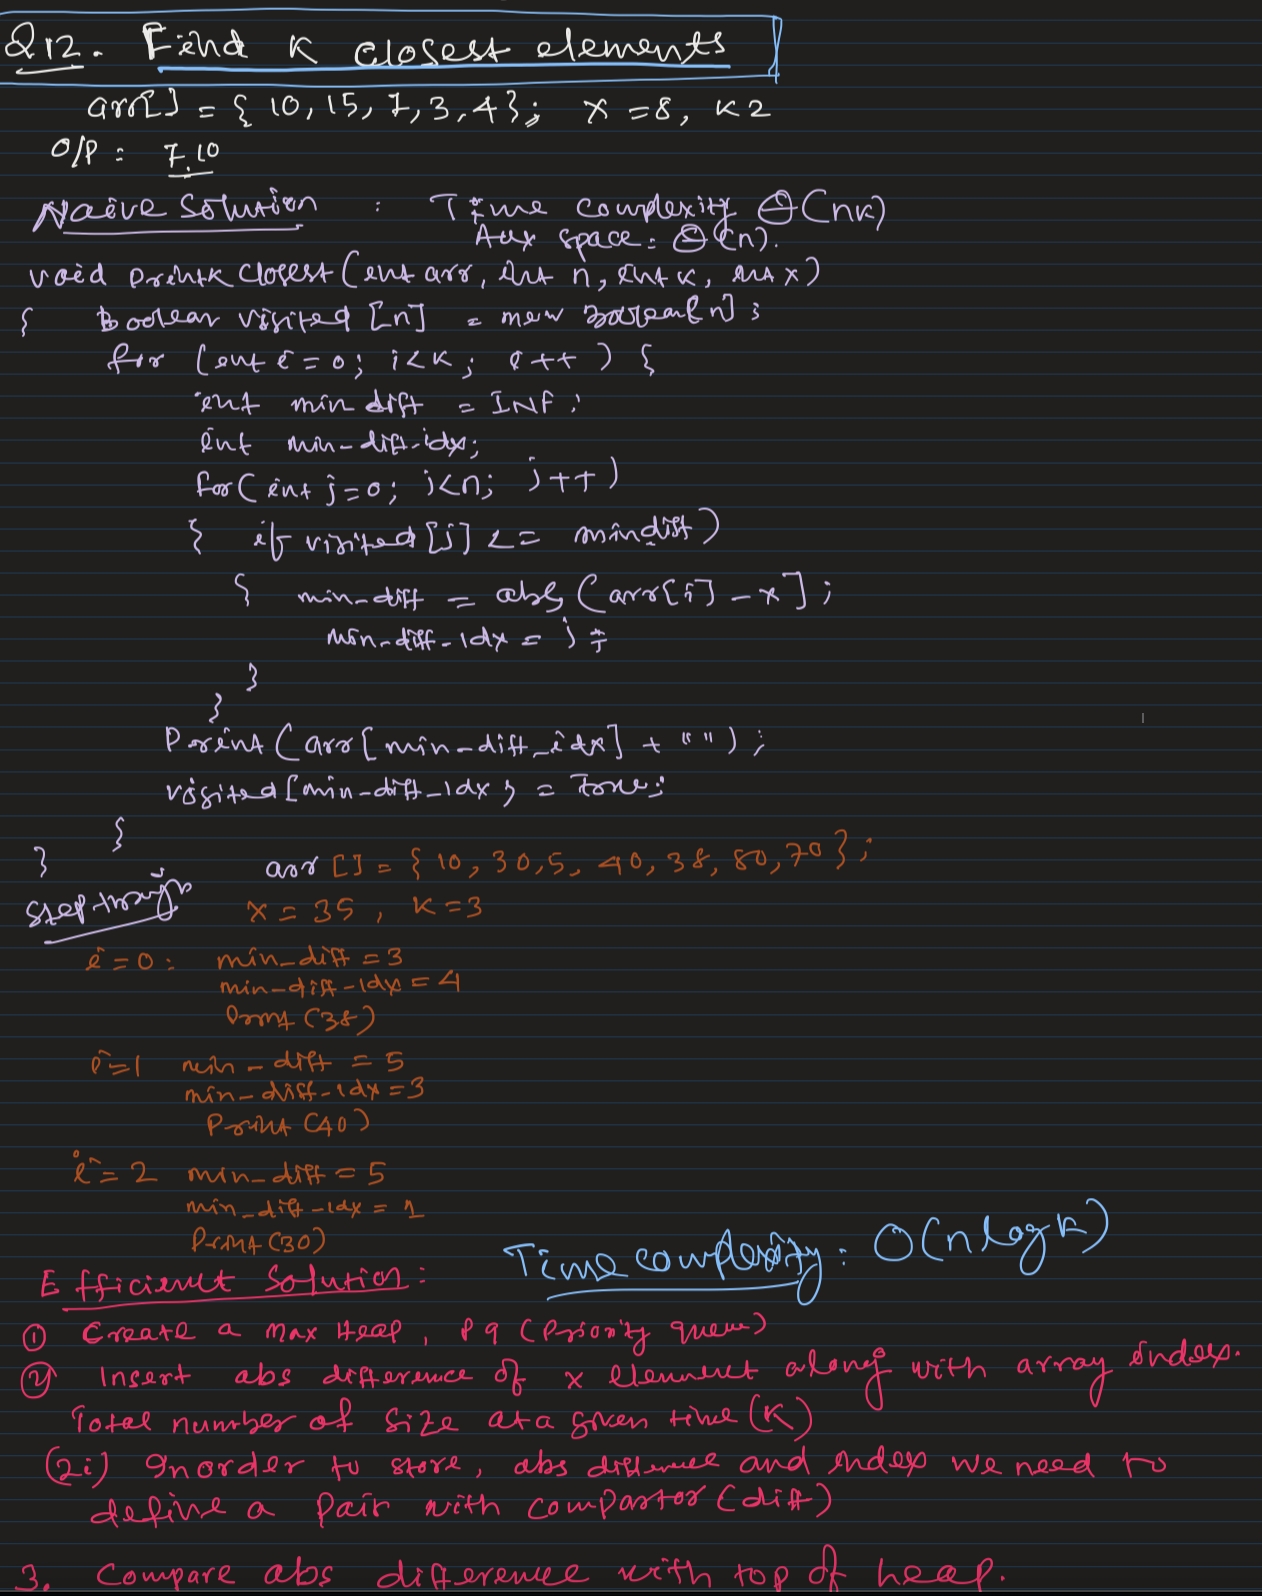 Q12. Find K closest elements
arr[] = { 10, 15, 7, 3, 4}; x = 8, K 2
O/P : 7, 10
Naive Solution : Time complexity Θ(nk)
Aux space : Θ(n).
void printk closest (int arr, int n, int k, int x)
{ Boolean visited [n] = new boolean[n] ;
for (int i = 0; i < K; i ++ ) {
int min diff = INF ;
int min-diff-idx;
for( int j=0; j<n; j++)
{ if visited [j] <= mindiff)
{ min-diff = abs (arr[i] - x] ;
min-diff-idx = j ;
}
}
Print (arr[min-diff_idx] + " ") ;
visited [min-diff-idx } = True;
}
}
arr [] = { 10, 30, 5, 40, 38, 80, 70 } ;
Step through
x = 35 , K = 3
i = 0 : min_diff = 3
min-diff-idx = 4
Print (38)
i=1 min - diff = 5
min-diff-idx = 3
Print (40)
i = 2 min_diff = 5
min_diff-idx = 1
Print (30)
Time complexity : O(n log k)
Efficient Solution :
① Create a max Heap, pq (Priority queue)
② Insert abs difference of x element along with array index.
Total number of size at a given time (K)
(2i) Inorder to store, abs difference and index we need to
define a pair with compartor (diff)
3. Compare abs difference with top of heap.